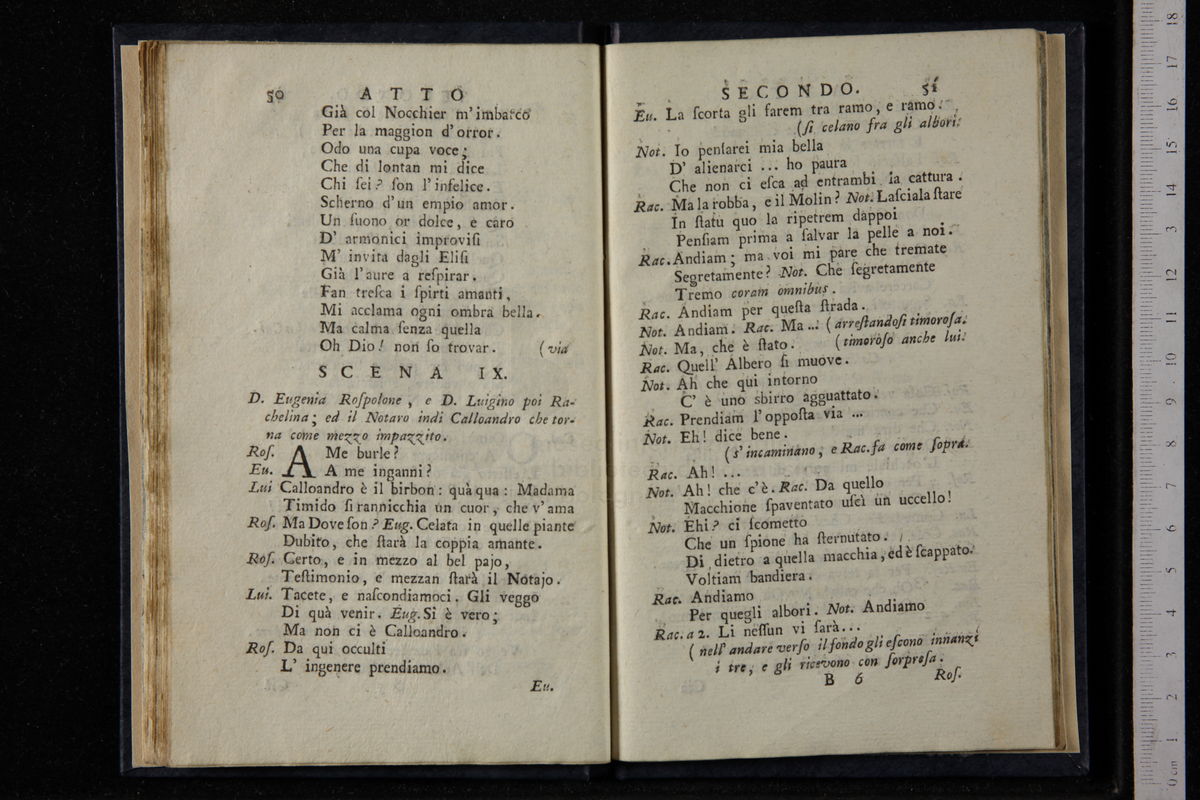 50 ATTO
Già col Nocchier m'imbarco
Per la maggion d'orror.
Odo una cupa voce;
Che di lontan mi dice
Chi ſei? ſon l'infelice.
Scherno d'un empio amor.
Un ſuono or dolce, e caro
D' armonici improviſi
M' invita dagli Eliſi
Già l'aure a reſpirar.
Fan treſca i ſpirti amanti,
Mi acclama ogni ombra bella.
Ma calma ſenza quella
Oh Dio! non ſo trovar. (via
SCENA IX.
D. Eugenia Roſpolone, e D. Luigino poi Ra-
chelina; ed il Notaro indi Calloandro che tor-
na come mezzo impazzito.
Roſ. A Me burle?
Eu. A me inganni?
Lui Calloandro è il birbon: quà qua: Madama
Timido ſi rannicchia un cuor, che v'ama
Roſ. Ma Dove ſon? Eug. Celata in quelle piante
Dubito, che ſtarà la coppia amante.
Roſ. Certo, e in mezzo al bel pajo,
Teſtimonio, e mezzan ſtarà il Notajo.
Lui. Tacete, e naſcondiamoci. Gli veggo
Di quà venir. Eug. Si è vero;
Ma non ci è Calloandro.
Roſ. Da qui occulti
L' ingenere prendiamo.
Eu.
SECONDO. 51
Eu. La ſcorta gli farem tra ramo, e ramo.
(ſi celano fra gli albori.
Not. Io penſarei mia bella
D' alienarci ... ho paura
Che non ci eſca ad entrambi la cattura.
Rac. Ma la robba, e il Molin? Not. Laſciala ſtare
In ſtatu quo la ripetrem dappoi
Penſiam prima a ſalvar la pelle a noi.
Rac. Andiam; ma voi mi pare che tremate
Segretamente? Not. Che ſegretamente
Tremo coram omnibus.
Rac. Andiam per queſta ſtrada.
Not. Andiam. Rac. Ma ... (arreſtandoſi timoroſa.
Not. Ma, che è ſtato. (timoroſo anche lui.
Rac. Quell' Albero ſi muove.
Not. Ah che qui intorno
C' è uno sbirro agguattato.
Rac. Prendiam l'oppoſta via ...
Not. Eh! dice bene.
(s'incaminano, e Rac. fa come ſopra.
Rac. Ah! ...
Not. Ah! che c'è. Rac. Da quello
Macchione ſpaventato uſcì un uccello!
Not. Ehi? ci ſcometto
Che un ſpione ha ſternutato.
Di dietro a quella macchia, ed è ſcappato.
Voltiam bandiera.
Rac. Andiamo
Per quegli albori. Not. Andiamo
Rac. a 2. Li neſſun vi ſarà...
(nell' andare verſo il fondo gli eſcono innanzi
i tre, e gli ricevono con ſorpreſa.
B 6 Roſ.
18
17
16
15
14
13
12
11
10
9
8
7
6
5
4
3
2
1
0 cm